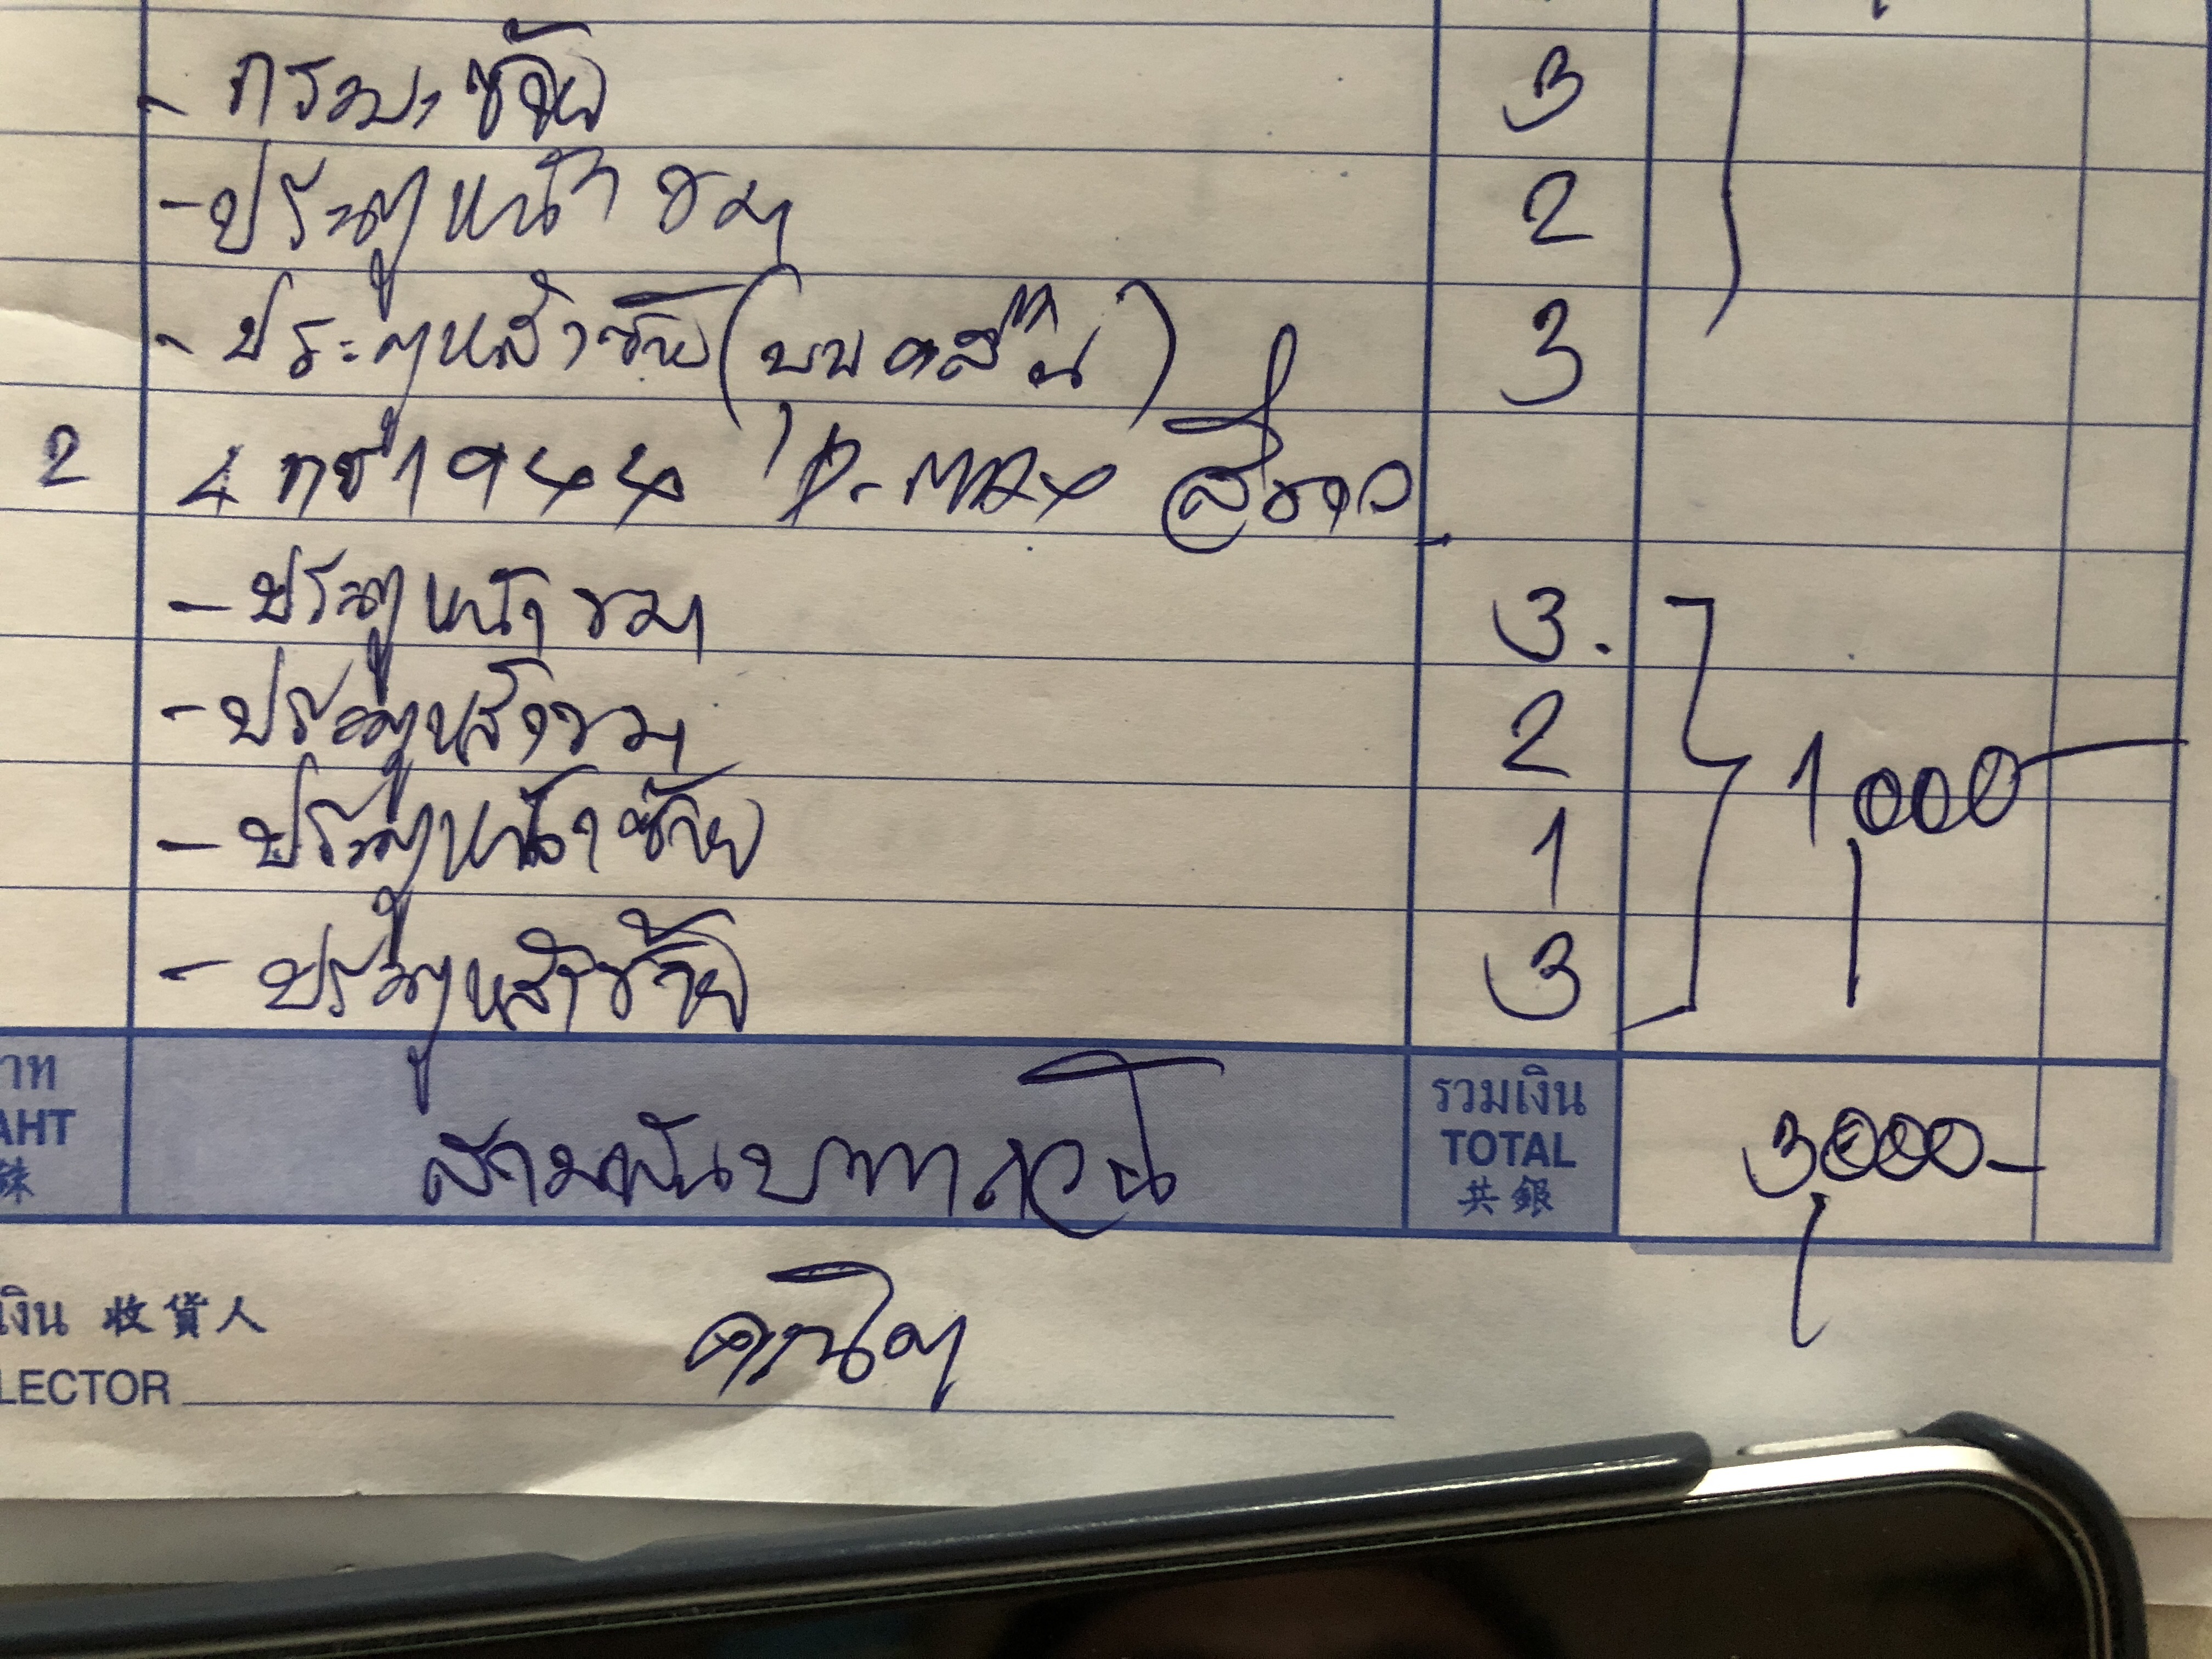 - กระบะ ซ้าย 3
- ประตูหน้า ขวา 2
- ประตูหลังซ้าย ( ) 3
2 4 กช 1944 D-MAX สีขาว
- ประตูหน้า ขวา 3.
- ประตูหลังขวา 2
- ประตูหน้า ซ้าย 1 1,000
- ประตูหลังซ้าย 3
าท
AHT
銖
สามพันบาทถ้วน
รวมเงิน
TOTAL
共銀
3,000-
เงิน 收貨人
LECTOR